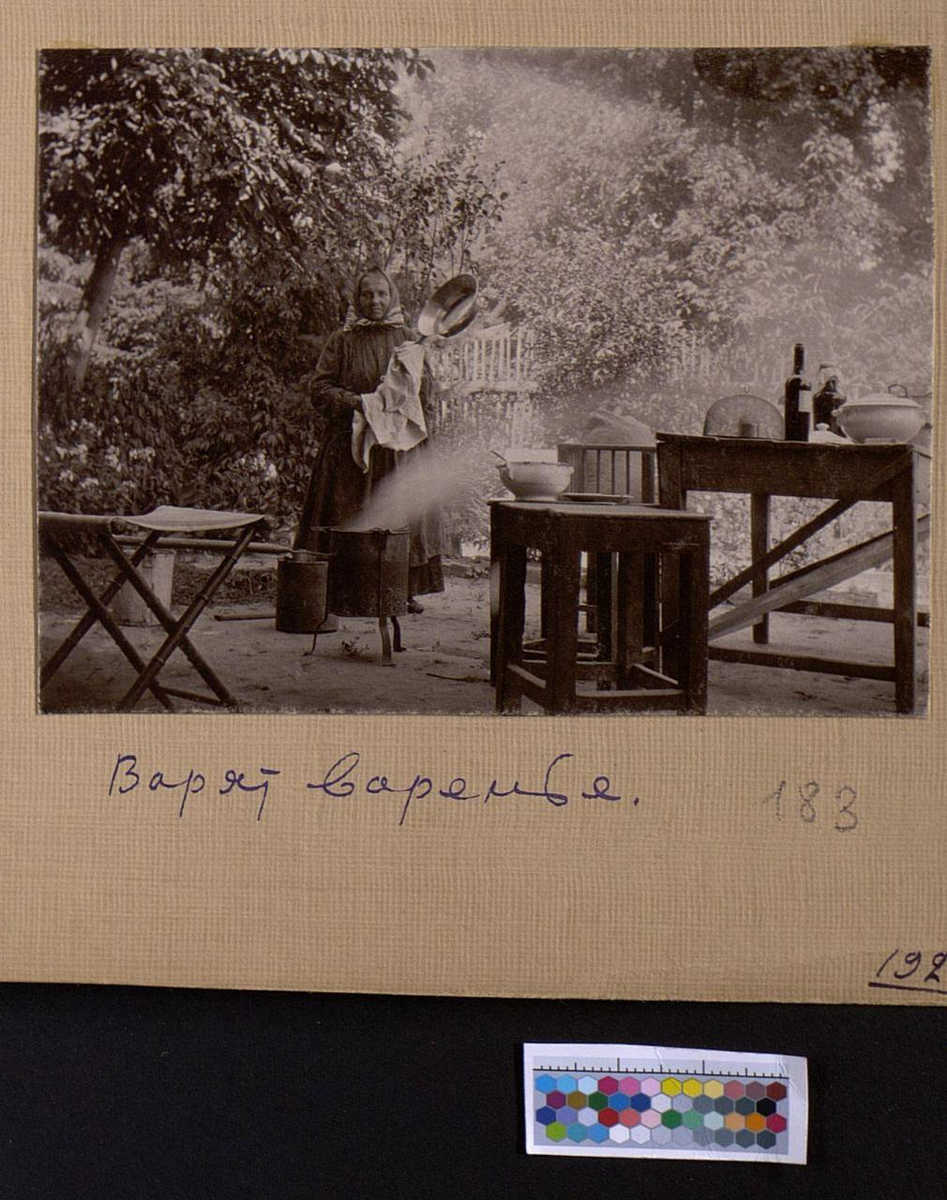 Варят варенье.
183
192